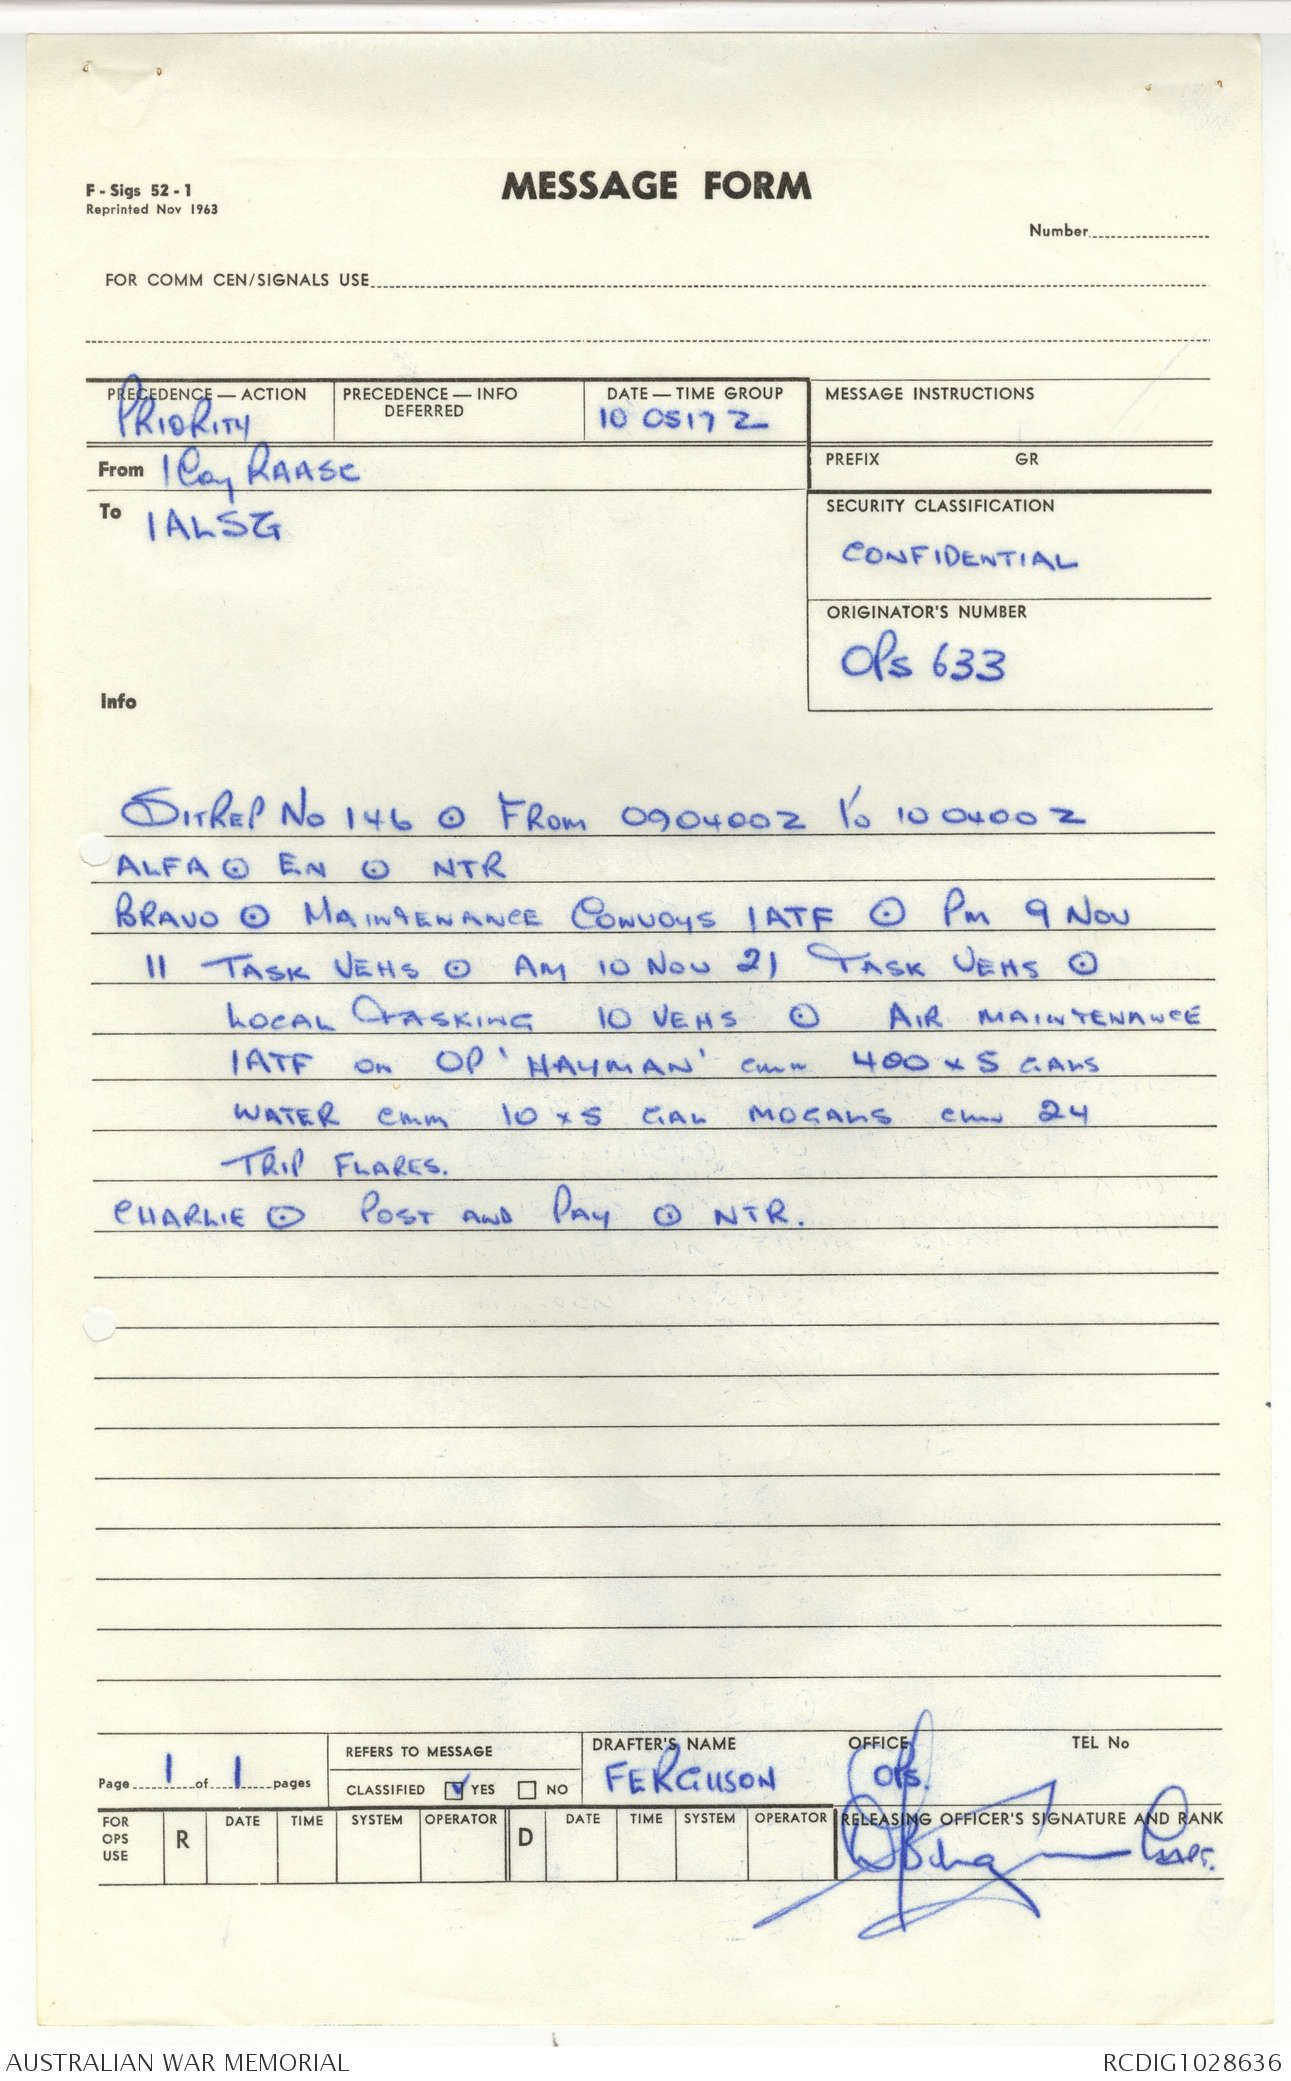 F - Sigs 52 - 1
Reprinted Nov 1963
MESSAGE FORM
Number
FOR COMM CEN/SIGNALS USE
PRECEDENCE — ACTION
PRIORITY
PRECEDENCE — INFO
DEFERRED
DATE — TIME GROUP
10 0517 Z
MESSAGE INSTRUCTIONS
From 1 Coy RAASC
PREFIX GR
To 1ALSG
SECURITY CLASSIFICATION
CONFIDENTIAL
ORIGINATOR'S NUMBER
OPS 633
Info
SITREP NO 146 ⊙ FROM 090400Z TO 100400Z
ALFA ⊙ EN ⊙ NTR
BRAVO ⊙ MAINTENANCE CONVOYS 1ATF ⊙ PM 9 NOV
11 TASK VEHS ⊙ AM 10 NOV 21 TASK VEHS ⊙
LOCAL TASKING 10 VEHS ⊙ AIR MAINTENANCE
1ATF on OP 'HAYMAN' cmm 400 x 5 GALS
WATER cmm 10 x 5 GAL MOGALS cmm 24
TRIP FLARES.
CHARLIE ⊙ POST AND PAY ⊙ NTR.
Page 1 of 1 pages
REFERS TO MESSAGE
CLASSIFIED YES NO
DRAFTER'S NAME
FERGUSON
OFFICE
OPS.
TEL No
FOR OPS USE
R DATE TIME SYSTEM OPERATOR D DATE TIME SYSTEM OPERATOR
RELEASING OFFICER'S SIGNATURE AND RANK
Capt.
AUSTRALIAN WAR MEMORIAL
RCDIG1028636